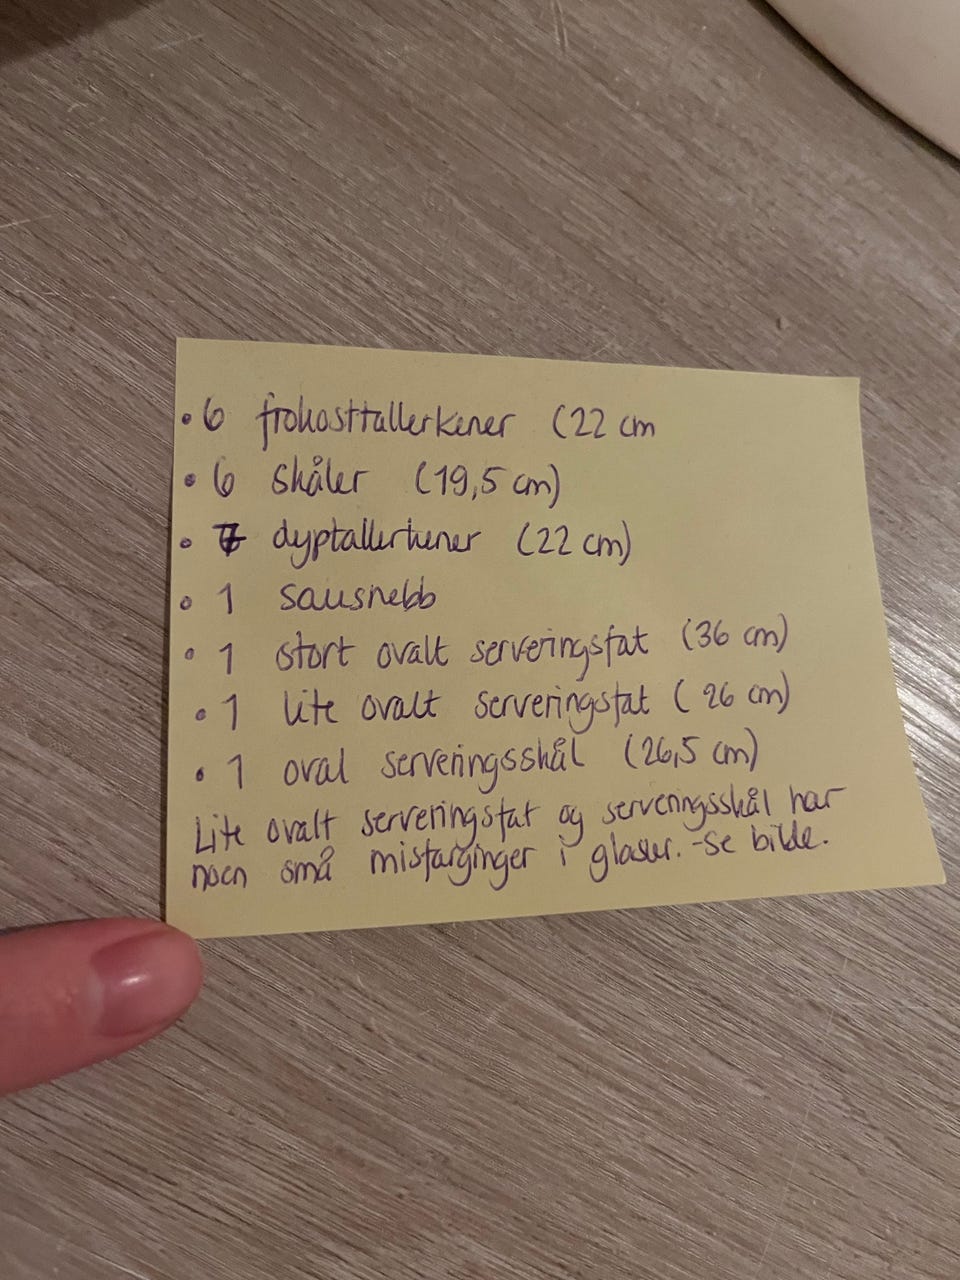 • 6 frokosttallerkener (22 cm
• 6 skåler (19,5 cm)
• 7 dyptallerkener (22 cm)
• 1 sausnebb
• 1 stort ovalt serveringsfat (36 cm)
• 1 lite ovalt serveringsfat (26 cm)
• 1 oval serveringsskål (26,5 cm)
Lite ovalt serveringsfat og serveringsskål har
noen små misfarginger i glasur. -Se bilde.